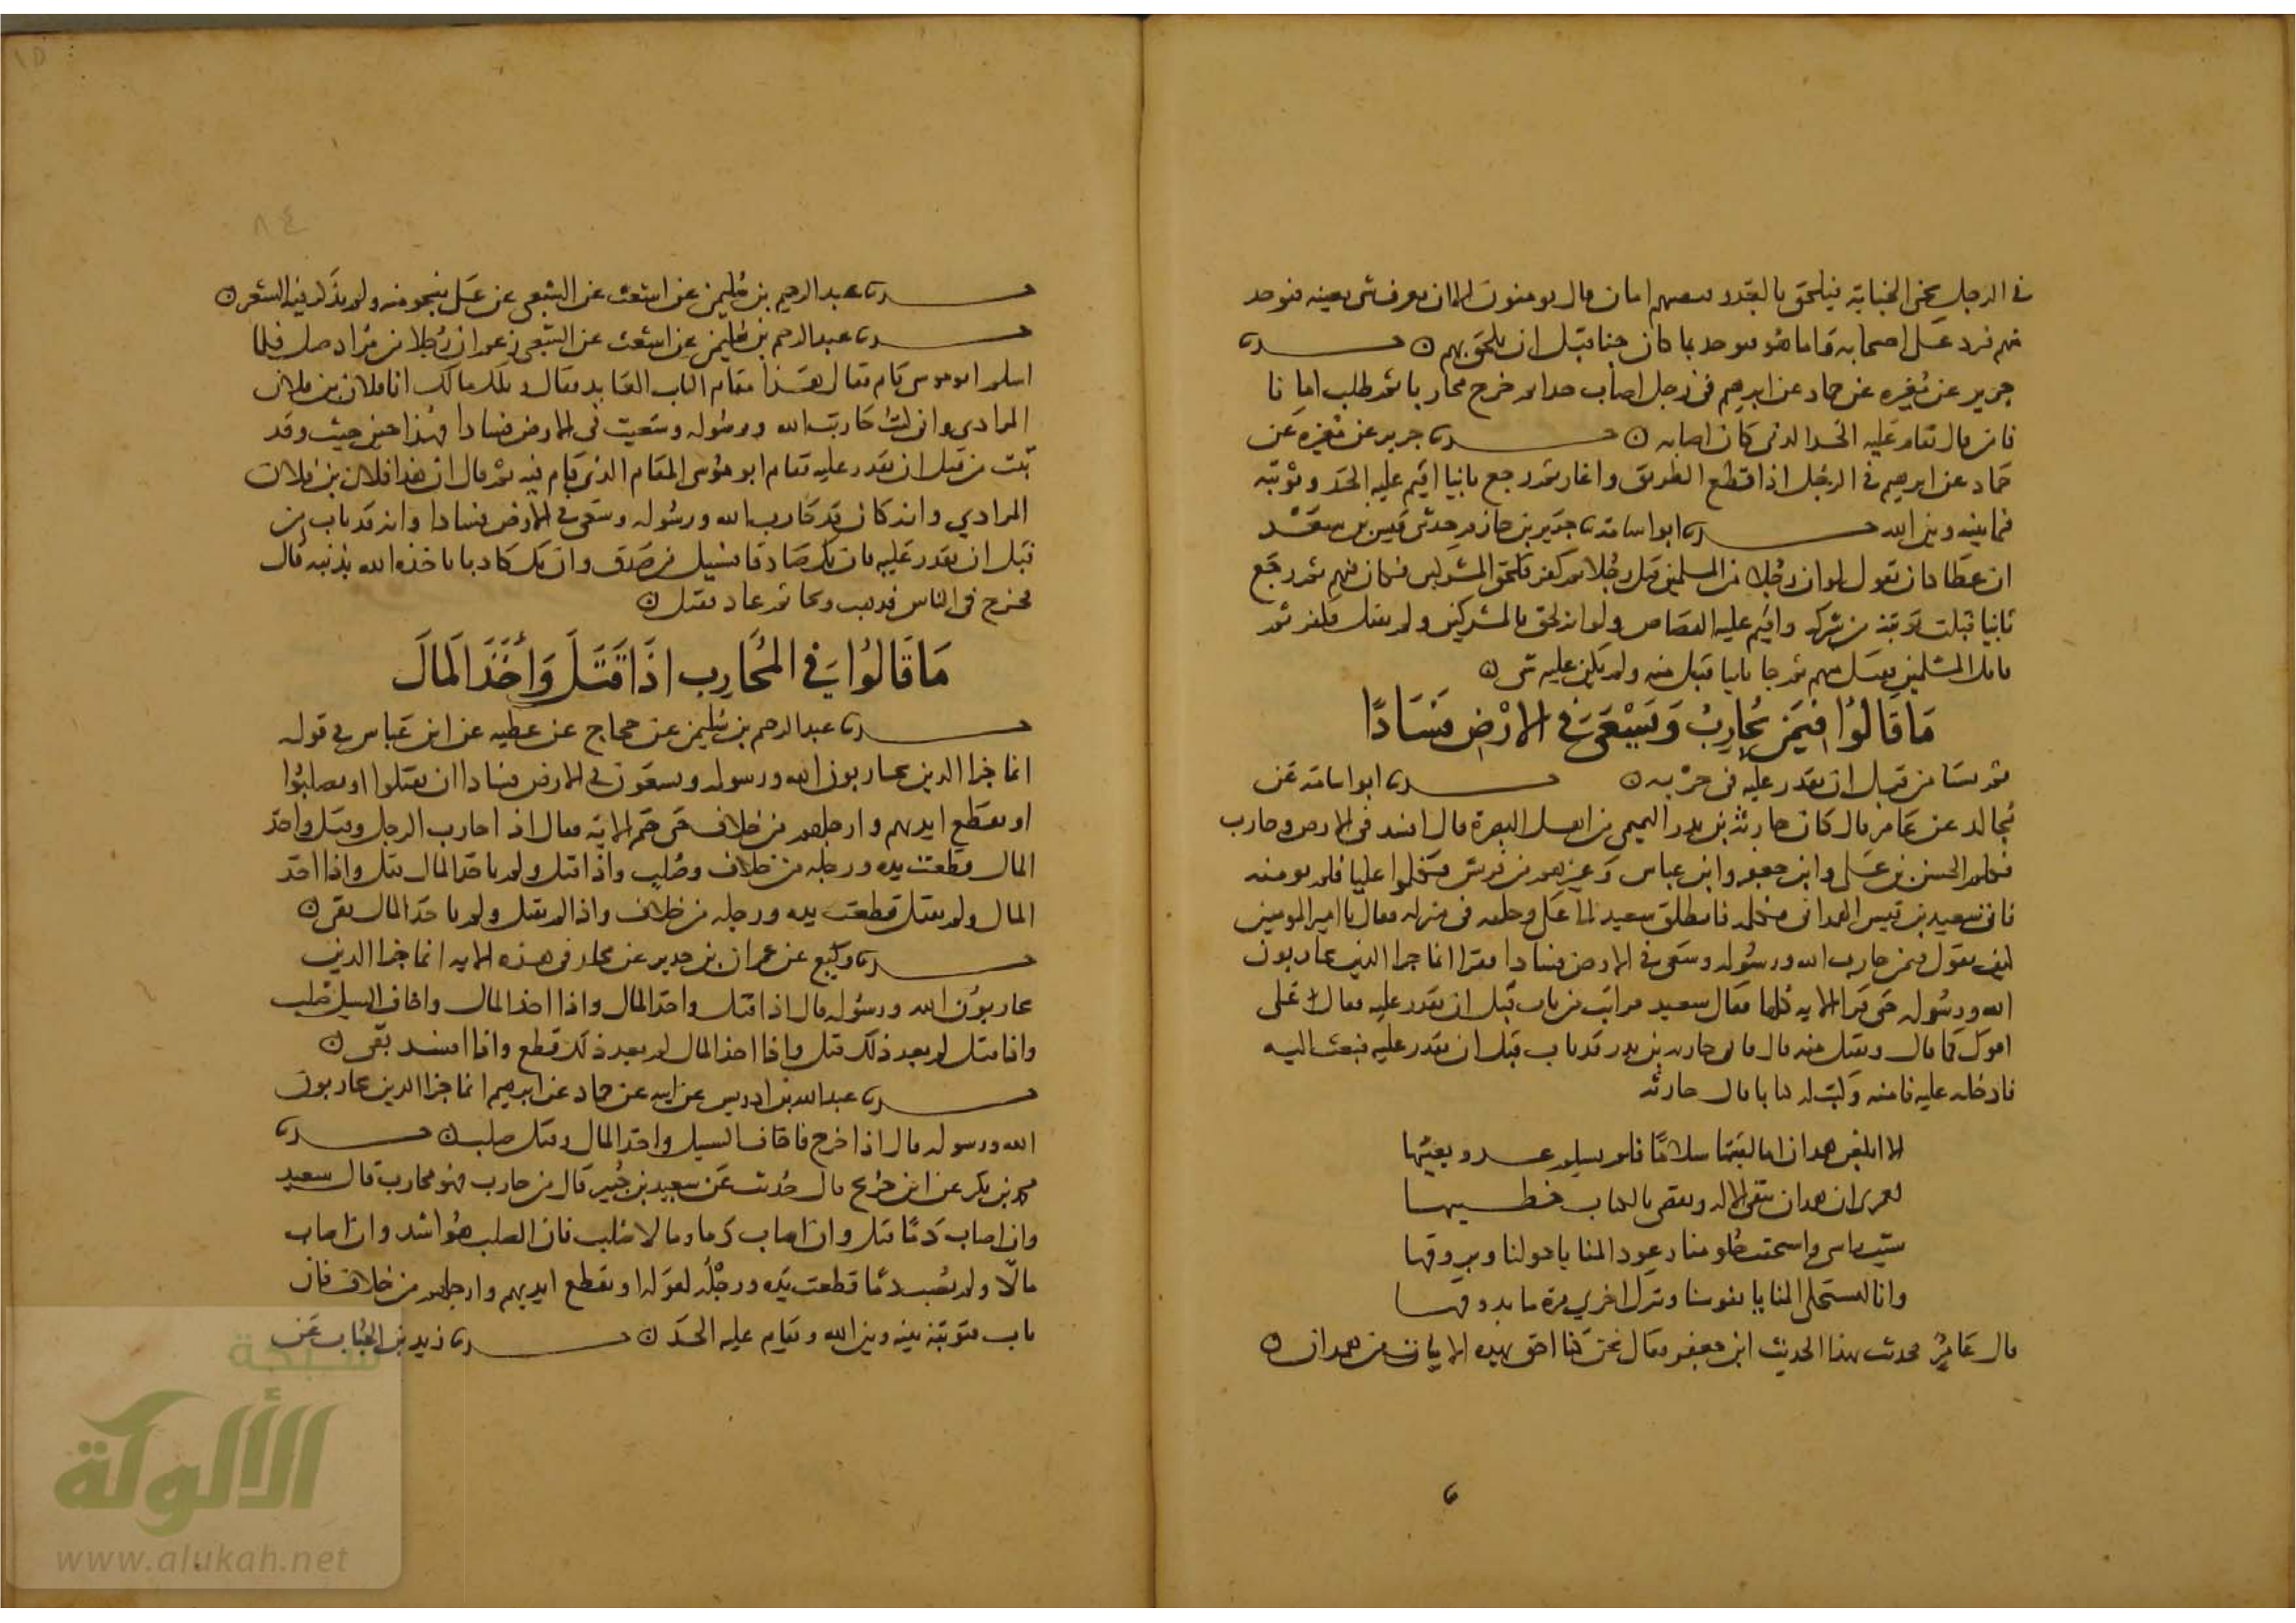 في الرجل يجني الجناية فيلحق بالعدو فيصيبهم امان قال يومنون الا ان يعرف شي بعينه فيوخذ
منهم فيرد على اصحابه واما هو فيوخذ بما كان جنا قبل ان يلحق بهم ن حدثنا
جرير عن مغيره عن حماد عن ابرهيم في رجل اصاب حدا ثم خرج محاربا ثم طلب امانا
فامن قال يقام عليه الحد الذي كان اصابه ن حدثنا جرير عن مغيره عن
حماد عن ابرهيم في الرجل اذا قطع الطريق واغار ثم رجع تايبا اقيم عليه الحد وتوبته
فيما بينه وبين الله حدثنا ابو اسامة نا جرير بن حازم حدثني قيس بن سعد
ان عطا كان يقول لو ان رجلا من المسلمين قتل رجلا ثم كفر فلحق المشركين فكان فيهم ثم رجع
تايبا قبلت توبته من شركه واقيم عليه القصاص ولو انه لحق بالمشركين ولم يقتل فكفر ثم
قاتل المسلمين فقتل منهم ثم جا تايبا قبل منه ولم يكن عليه شي ن
مَا قَالُوا فِيمَن يُحارِبُ وَيَسْعَى في الارْضِ فَسَادًا
ثم يستامن قبل ان يقدر عليه في حربه ن حدثنا ابو اسامة عن
مجالد عن عامر قال كان حارثة بن بدر التميمي من اهل البصرة قال افسد في الارض وحارب
فكلم الحسن بن علي وابن جعفر وابن عباس وغيرهم من قريش فكلموا عليا فلم يومنه
فاتى سعيد بن قيس الهمداني فكلمه فانطلق سعيد الى علي وخلفه في منزله فقال يا امير المومنين
كيف تقول فيمن حارب الله ورسوله وسعى في الارض فسادا فقرا انما جزا الذين يحاربون
الله ورسوله حتى قرا الاية كلها فقال سعيد مرايت من تاب قبل ان يقدر عليه فقال علي
اقول كما قال ويقبل منه قال فان حارثة بن بدر قد تاب قبل ان يقدر عليه فبعث اليه
فادخله عليه فامنه وكتب له كتابا فقال حارثة
الا ابلغن همدان اما لقيتها سلاما فلا يسلم عدو يعيبها
لعمري ان همدان تتقي الاله ويقضي بالكتاب خطيبها
شيب راسي واستخف حلومنا رعود المنايا حولنا وبروقها
وانا لتستحلي المنايا نفوسنا وتترك اخرى مرة ما تذوقها
قال عامر فحدثت بهذا الحديث ابن جعفر فقال نحن كنا احق بهذه الابيات من همدان ن
حدثنا عبد الرحيم بن سليمن عن اشعث عن الشعبي عن علي بنحو منه ولم يذكر فيه الشعر ن
حدثنا عبد الرحيم بن سليمن عن اشعث عن الشعبي ان رجلا من مراد صلى فلما
سلم ابو موسى قام فقال هذا مقام التايب العايذ فقال ويلك مالك انا فلان بن فلان
المرادي واني كنت حاربت الله ورسوله وسعيت في الارض فسادا فهذا حين جيت وقد
تبت من قبل ان يقدر عليه فقام ابو موسى المقام الذي قام فيه ثم قال ان هذا فلان بن فلان
المرادي وانه كان قد حارب الله ورسوله وسعى في الارض فسادا وانه قد تاب من
قبل ان يقدر عليه فان يك صادقا فسبيل من صدق وان يك كاذبا ياخذه الله بذنبه قال
فخرج في الناس فذهب ونجا ثم عاد فقتل ن
مَا قَالُوا في المُحَارِب اذَا قَتَلَ وَأَخَذَ الَمالَ
حدثنا عبد الرحيم بن سليمن عن حجاج عن عطيه عن ابن عباس في قوله
انما جزا الذين يحاربون الله ورسوله ويسعون في الارض فسادا ان يقتلوا او يصلبوا
او تقطع ايديهم وارجلهم من خلاف حتى ختم الاية فقال اذا حارب الرجل وقتل واخذ
المال قطعت يده ورجله من خلاف وصلب واذا قتل ولم ياخذ المال قتل واذا اخذ
المال ولم يقتل قطعت يده ورجله من خلاف واذا لم يقتل ولم ياخذ المال نفي ن
حدثنا وكيع عن عمران بن حدير عن مجلز في هذه الاية انما جزا الذين
يحاربون الله ورسوله قال اذا قتل واخذ المال واذا اخذ المال واخاف السبيل صلب
واذا قتل لم يعد ذلك قتل واذا اخذ المال لم يعد ذلك قطع واذا افسد نفي ن
حدثنا عبد الله بن ادريس عن ابيه عن حماد عن ابرهيم انما جزا الذين يحاربون
الله ورسوله قال اذا خرج فاخاف السبيل واخذ المال وقتل صلب ن حدثنا
محمد بن بكر عن ابن جريج قال حدثت عن سعيد بن جبير قال من حارب فهو محارب قال سعيد
وان اصاب دمًا قتل وان اصاب دما ومالا صلب فان الصلب هو اشد وان اصاب
مالا ولم يصب دمًا قطعت يده ورجله لقوله او تقطع ايديهم وارجلهم من خلاف فان
تاب فتوبته بينه وبين الله ويقام عليه الحد ن حدثنا زيد بن الحباب عن
شبكة
الألوكة
www.alukah.net